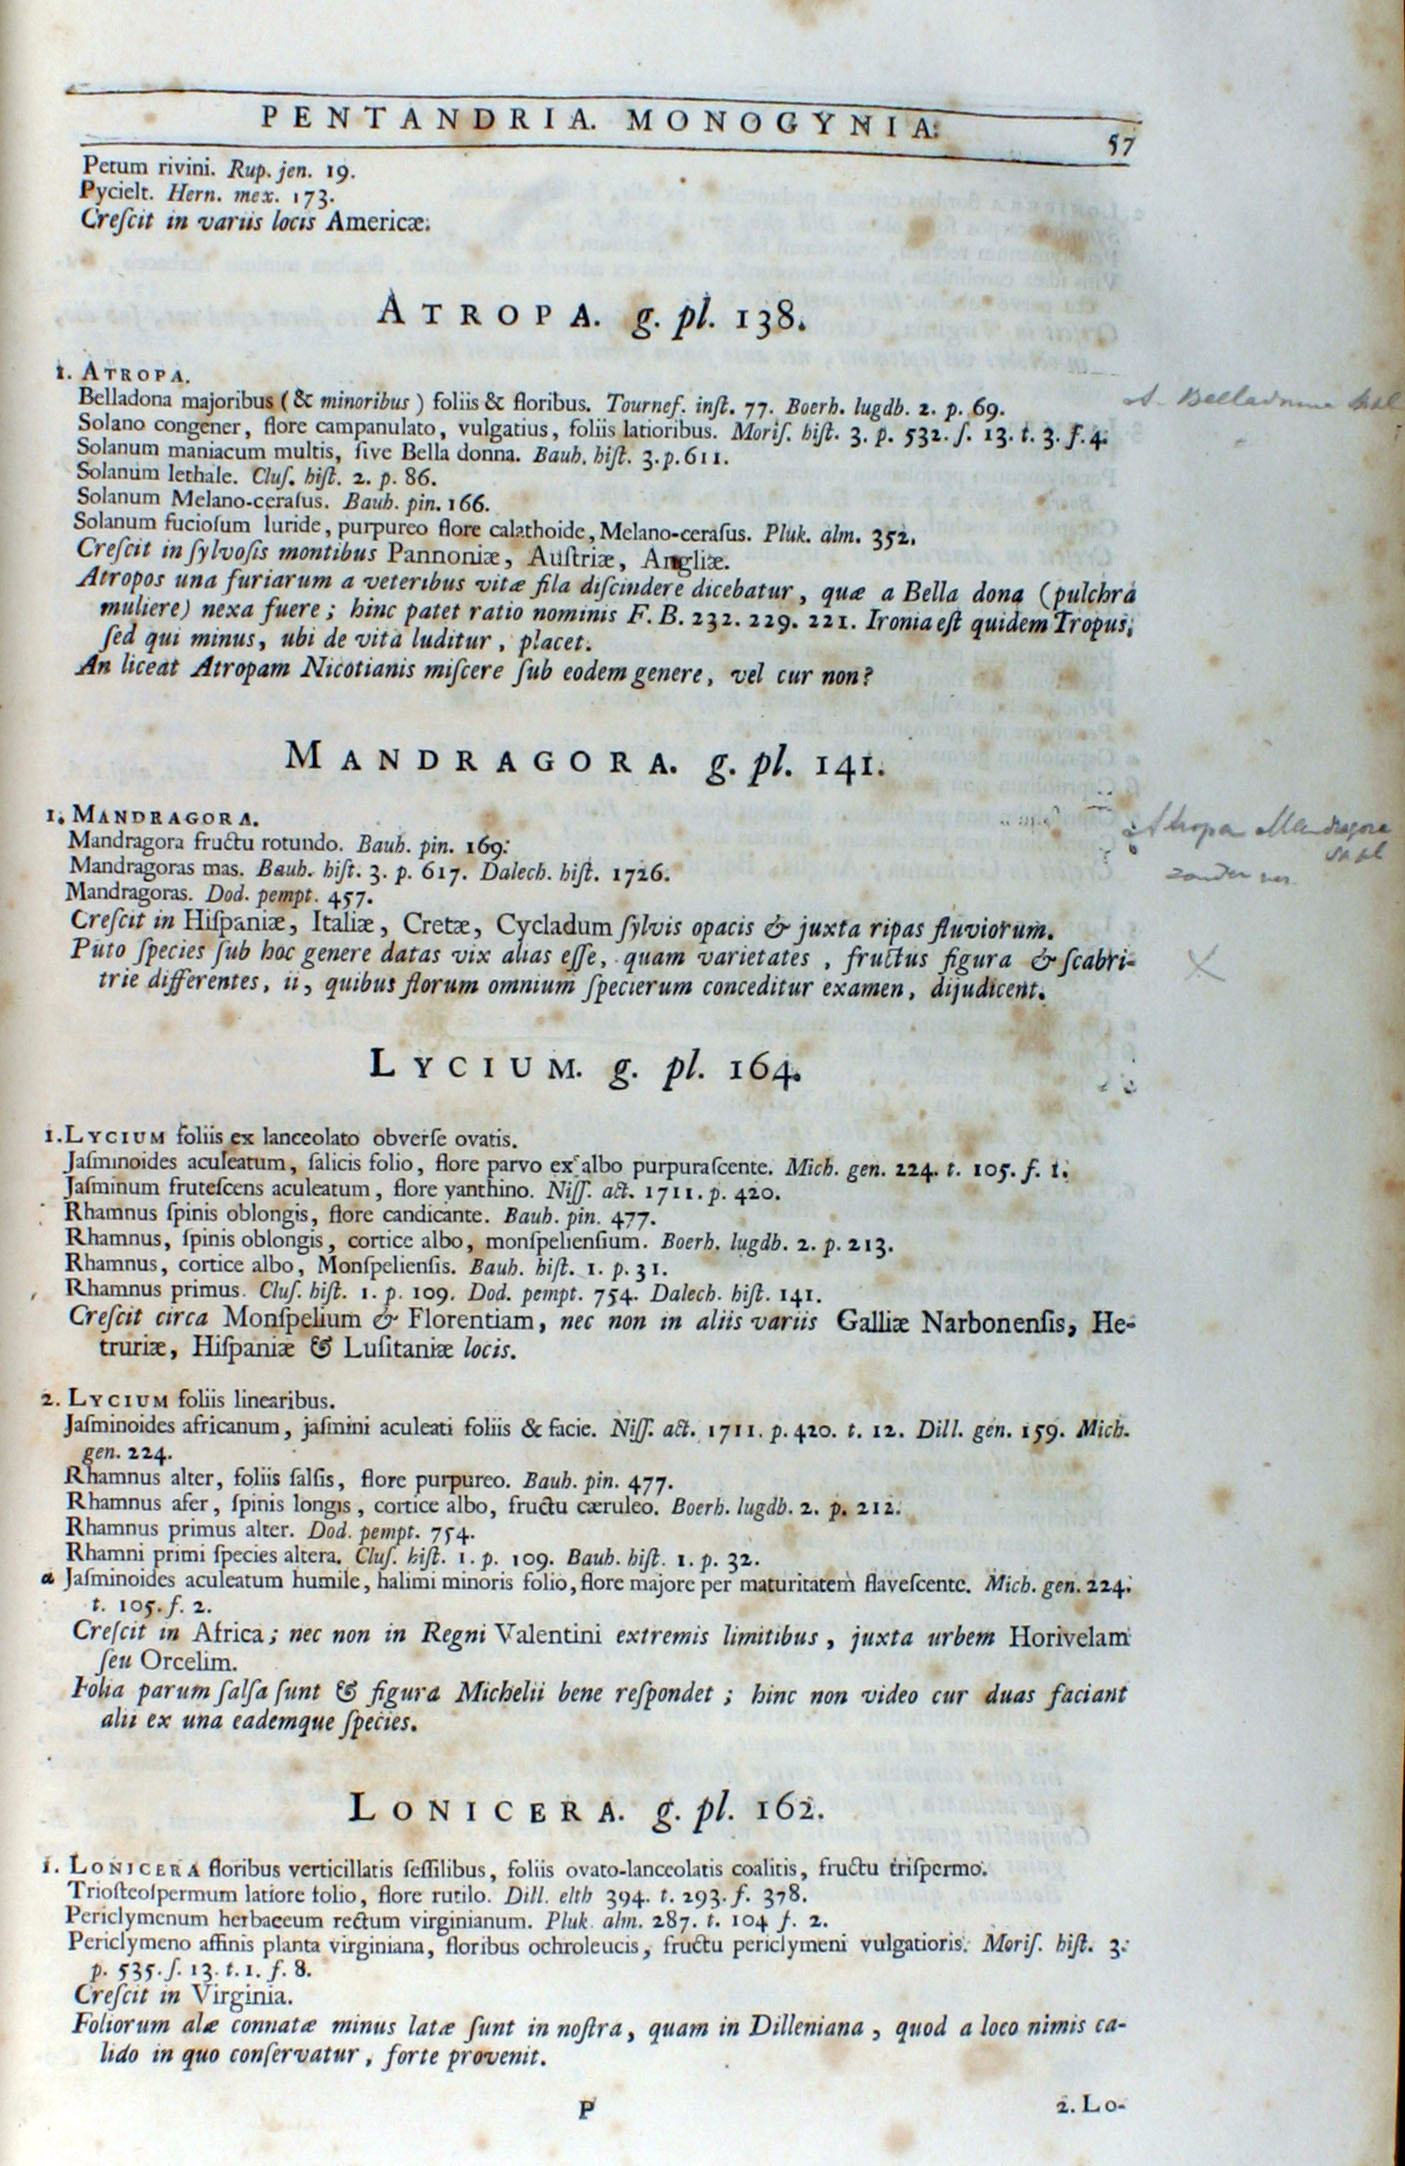 PENTANDRIA. MONOGYNIA. 57
Petum rivini. Rup. jen. 19.
Pycielt. Hern. mex. 173.
Creſcit in variis locis Americæ.
ATROPA. g. pl. 138.
1. ATROPA.
Belladona majoribus (& minoribus) foliis & floribus. Tournef. inſt. 77. Boerh. lugdb. 2. p. 69.
A. Belladonna
Solano congener, flore campanulato, vulgatius, foliis latioribus. Moriſ. hiſt. 3. p. 532. ſ. 13. t. 3. f. 4.
Solanum maniacum multis, ſive Bella donna. Bauh. hiſt. 3. p. 611.
Solanum lethale. Cluſ. hiſt. 2. p. 86.
Solanum Melano-ceraſus. Bauh. pin. 166.
Solanum fucioſum luride, purpureo flore calathoide, Melano-ceraſus. Pluk. alm. 352.
Creſcit in ſylvoſis montibus Pannoniæ, Auſtriæ, Angliæ.
Atropos una furiarum a veteribus vitæ fila diſcindere dicebatur, quæ a Bella dona (pulchra
muliere) nexa fuere; hinc patet ratio nominis F. B. 232. 229. 221. Ironia eſt quidem Tropus,
ſed qui minus, ubi de vita luditur, placet.
An liceat Atropam Nicotianis miſcere ſub eodem genere, vel cur non?
MANDRAGORA. g. pl. 141.
1. MANDRAGORA.
Atropa Mandragora
Mandragora fructu rotundo. Bauh. pin. 169.
Mandragoras mas. Bauh. hiſt. 3. p. 617. Dalech. hiſt. 1726.
zonder
Mandragoras. Dod. pempt. 457.
Creſcit in Hiſpaniæ, Italiæ, Cretæ, Cycladum ſylvis opacis & juxta ripas fluviorum.
Puto ſpecies ſub hoc genere datas vix alias eſſe, quam varietates, fructus figura & ſcabri-
trie differentes, ii, quibus florum omnium ſpecierum conceditur examen, dijudicent.
LYCIUM. g. pl. 164.
1. LYCIUM foliis ex lanceolato obverſe ovatis.
Jaſminoides aculeatum, ſalicis folio, flore parvo ex albo purpuraſcente. Mich. gen. 224. t. 105. f. 1.
Jaſminum fruteſcens aculeatum, flore yanthino. Niſſ. act. 1711. p. 420.
Rhamnus ſpinis oblongis, flore candicante. Bauh. pin. 477.
Rhamnus, ſpinis oblongis, cortice albo, monſpelienſium. Boerh. lugdb. 2. p. 213.
Rhamnus, cortice albo, Monſpelienſis. Bauh. hiſt. 1. p. 31.
Rhamnus primus. Cluſ. hiſt. 1. p. 109. Dod. pempt. 754. Dalech. hiſt. 141.
Creſcit circa Monſpelium & Florentiam, nec non in aliis variis Galliæ Narbonenſis, He-
truriæ, Hiſpaniæ & Luſitaniæ locis.
2. LYCIUM foliis linearibus.
Jaſminoides africanum, jaſmini aculeati foliis & facie. Niſſ. act. 1711. p. 420. t. 12. Dill. gen. 159. Mich.
gen. 224.
Rhamnus alter, foliis ſalſis, flore purpureo. Bauh. pin. 477.
Rhamnus afer, ſpinis longis, cortice albo, fructu cæruleo. Boerh. lugdb. 2. p. 212.
Rhamnus primus alter. Dod. pempt. 754.
Rhamni primi ſpecies altera. Cluſ. hiſt. 1. p. 109. Bauh. hiſt. 1. p. 32.
α Jaſminoides aculeatum humile, halimi minoris folio, flore majore per maturitatem flaveſcente. Mich. gen. 224.
t. 105. f. 2.
Creſcit in Africa; nec non in Regni Valentini extremis limitibus, juxta urbem Horivelam
ſeu Orcelim.
Folia parum ſalſa ſunt & figura Michelii bene reſpondet; hinc non video cur duas faciant
alii ex una eademque ſpecies.
LONICERA. g. pl. 162.
1. LONICERA floribus verticillatis ſeſſilibus, foliis ovato-lanceolatis coalitis, fructu triſpermo.
Trioſteoſpermum latiore folio, flore rutilo. Dill. elth 394. t. 293. f. 378.
Periclymenum herbaceum rectum virginianum. Pluk. alm. 287. t. 104 f. 2.
Periclymeno affinis planta virginiana, floribus ochroleucis, fructu periclymeni vulgatioris. Moriſ. hiſt. 3.
p. 535. ſ. 13. t. 1. f. 8.
Creſcit in Virginia.
Foliorum alæ connatæ minus latæ ſunt in noſtra, quam in Dilleniana, quod a loco nimis ca-
lido in quo conſervatur, forte provenit.
P 2. Lo-